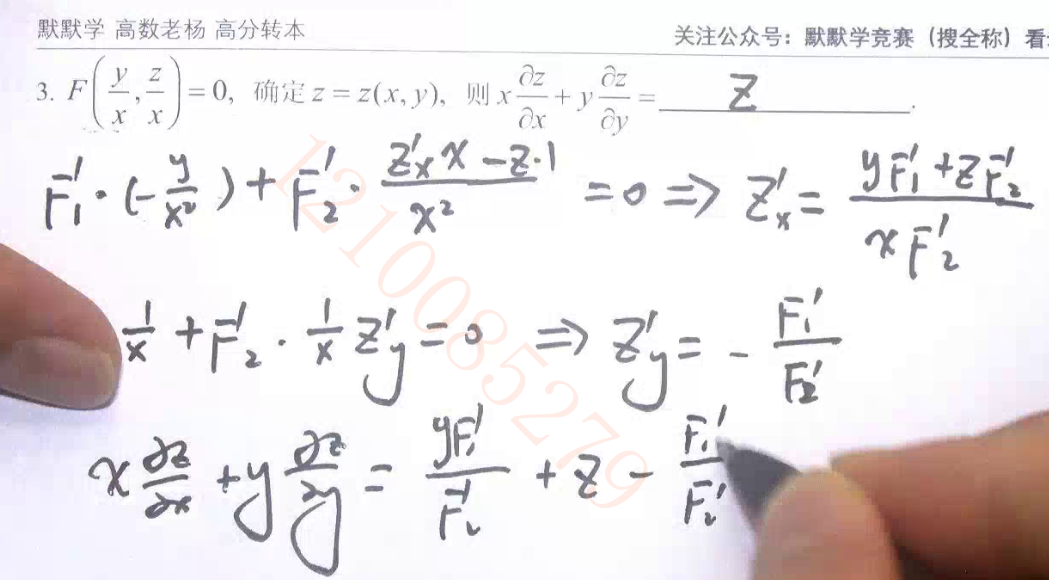 默默学 高数老杨 高分转本
关注公众号：默默学竞赛（搜全称）看
3. F(y/x, z/x) = 0, 确定 z = z(x, y), 则 x ∂z/∂x + y ∂z/∂y = z .
F₁′·(-y/x²) + F₂′· (z′ₓx - z·1)/x² = 0 ⇒ z′ₓ = (yF₁′ + zF₂′)/(xF₂′)
1/x + F₂′ · 1/x z′y = 0 ⇒ z′y = - F₁′/F₂′
x ∂z/∂x + y ∂z/∂y = yF₁′/F₂′ + z - F₁′/F₂′
1210085279